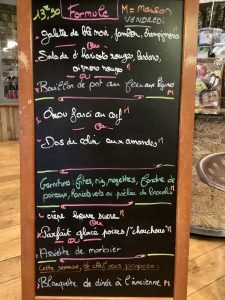 13€50 Formule M = maison
VENDREDI
Galette de blé noir, jambon, champignons
ou
Salade d'haricots rouges, lardons,
oignons rouges M
ou
Bouillon de pot au feu aux légumes M
Chou farci au
ou
Dos de colin aux amandes
Garnitures: frites, riz, fondue de
poireaux, haricots verts ou poêlée de brocolis
crêpe beurre sucre M
ou
Parfait glacé poires/"chouchous" M
Assiette de morbier
Cette semaine, le chef vous propose:
Blanquette de dinde à l'ancienne M